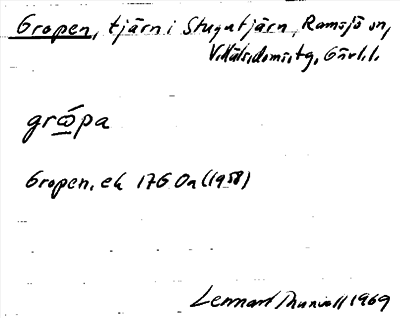 Gropen, tjärn i Stugutjärn, Ramsjö sn,
V. Häls. doms. tg, Gävl. l.
grώpa
Gropen, ek 17G 0a (1958)
Lennart 1969